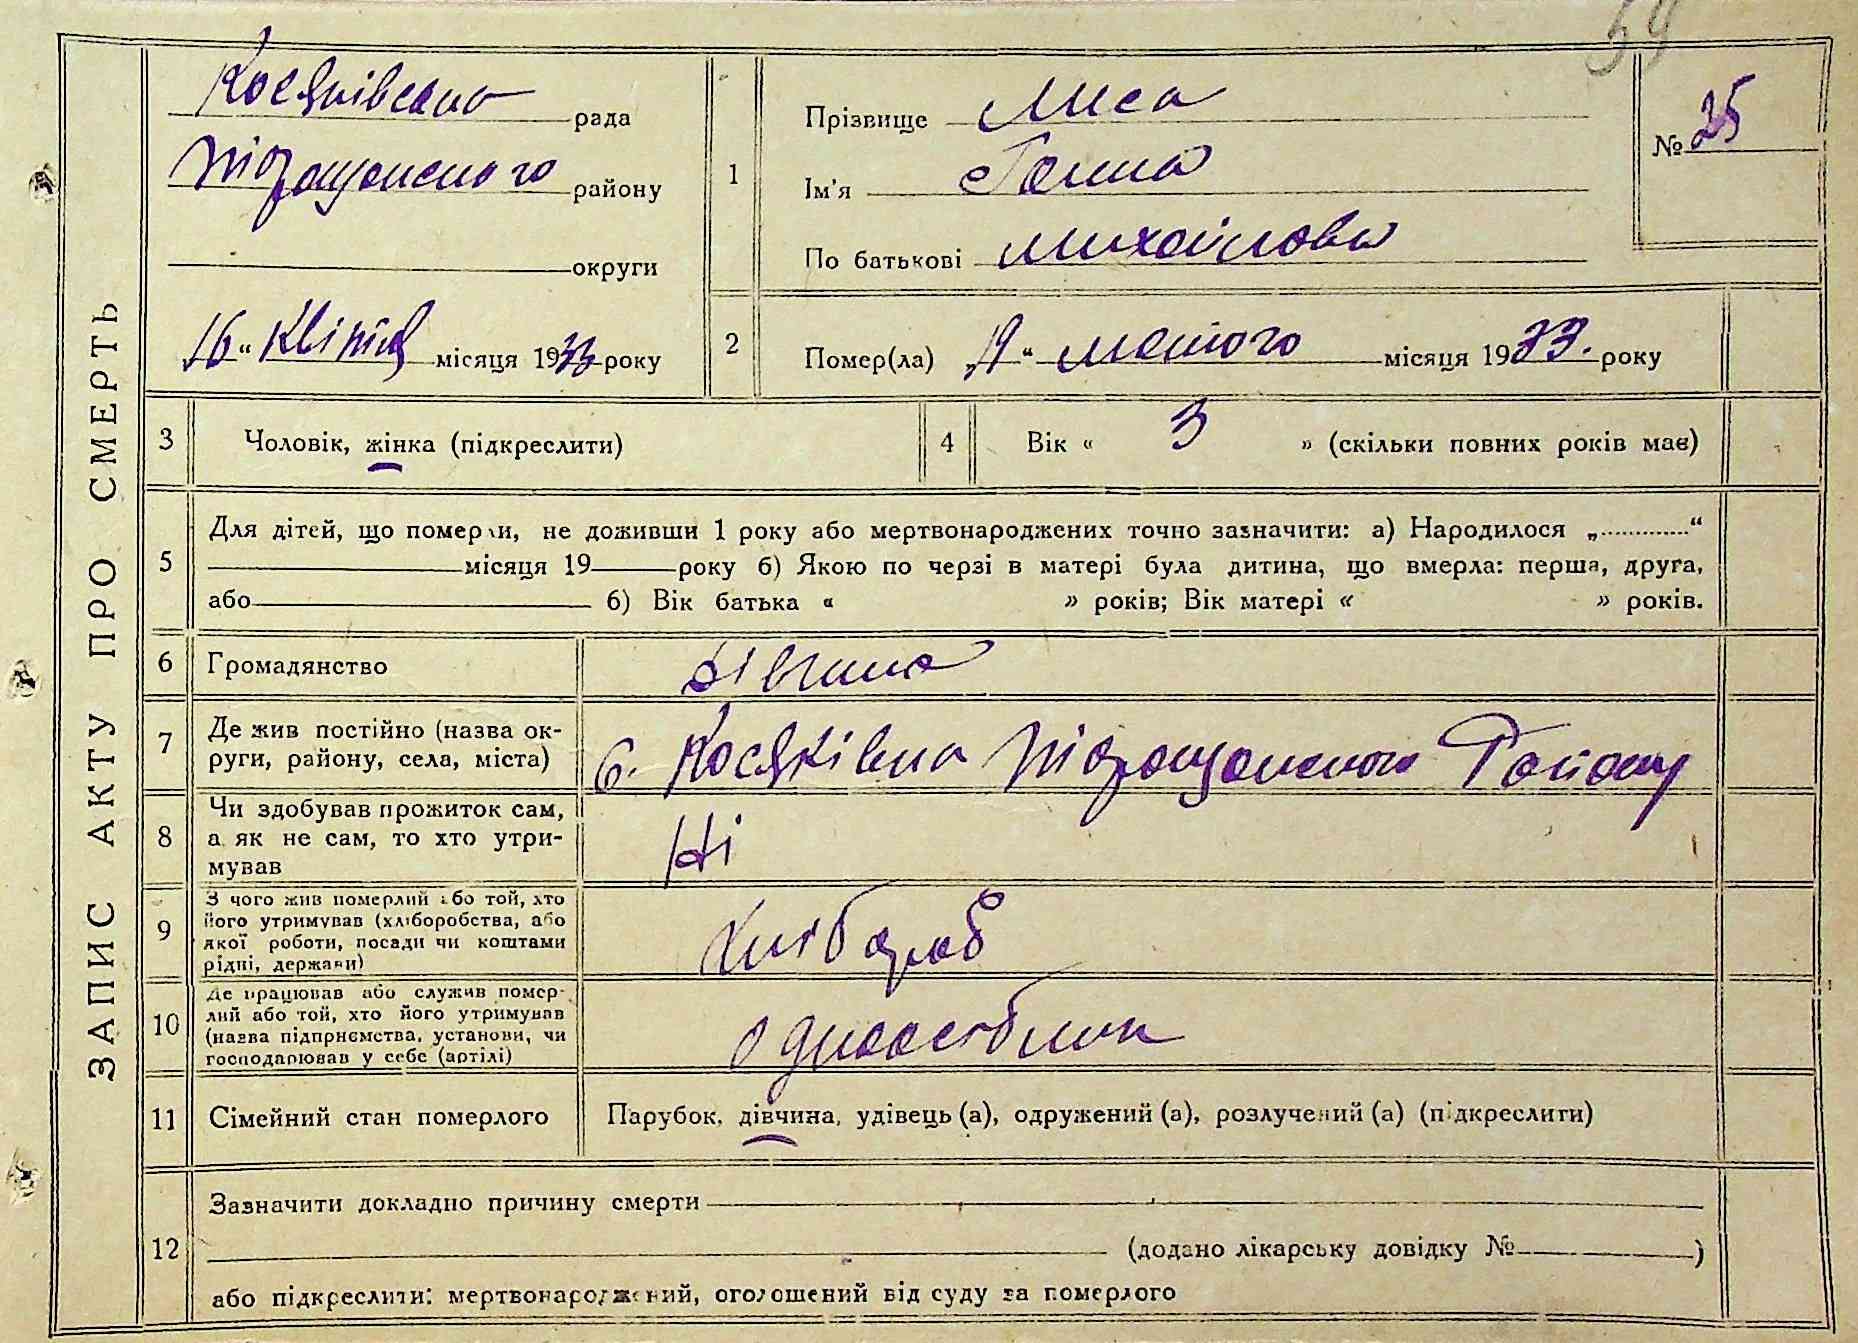 59
ЗАПИС АКТУ ПРО СМЕРТЬ
Косяківська рада
Таращанського району
округи
„16“ Квітня місяця 1933 року
1
Прізвище Лиса
Ім'я Ганна
По батькові Михайловна
№ 25
2
Помер(ла) „19“ лютого місяця 1933. року
3 Чоловік, жінка (підкреслити)
4 Вік « 3 » (скільки повних років має)
5 Для дітей, що померли, не доживши 1 року або мертвонароджених точно зазначити: а) Народилося „............“
місяця 19 року б) Якою по черзі в матері була дитина, що вмерла: перша, друга,
або б) Вік батька « » років; Вік матері « » років.
6 Громадянство дівчина
7 Де жив постійно (назва ок-
руги, району, села, міста) с. Косяківка Таращанського Району
8 Чи здобував прожиток сам,
а як не сам, то хто утри-
мував Ні
9 З чого жив померлий або той, хто
його утримував (хліборобства, або
якої роботи, посади чи коштами
рідні, держави) хлібороб
10 Де працював або служив помер-
лий або той, хто його утримував
(назва підприємства, установи, чи
господарював у себе (артілі) одноосібник
11 Сімейний стан померлого Парубок, дівчина, удівець (а), одружений (а), розлучений (а) (підкреслити)
12 Зазначити докладно причину смерти
(додано лікарську довідку № )
або підкреслити: мертвонароджений, оголошений від суду за померлого